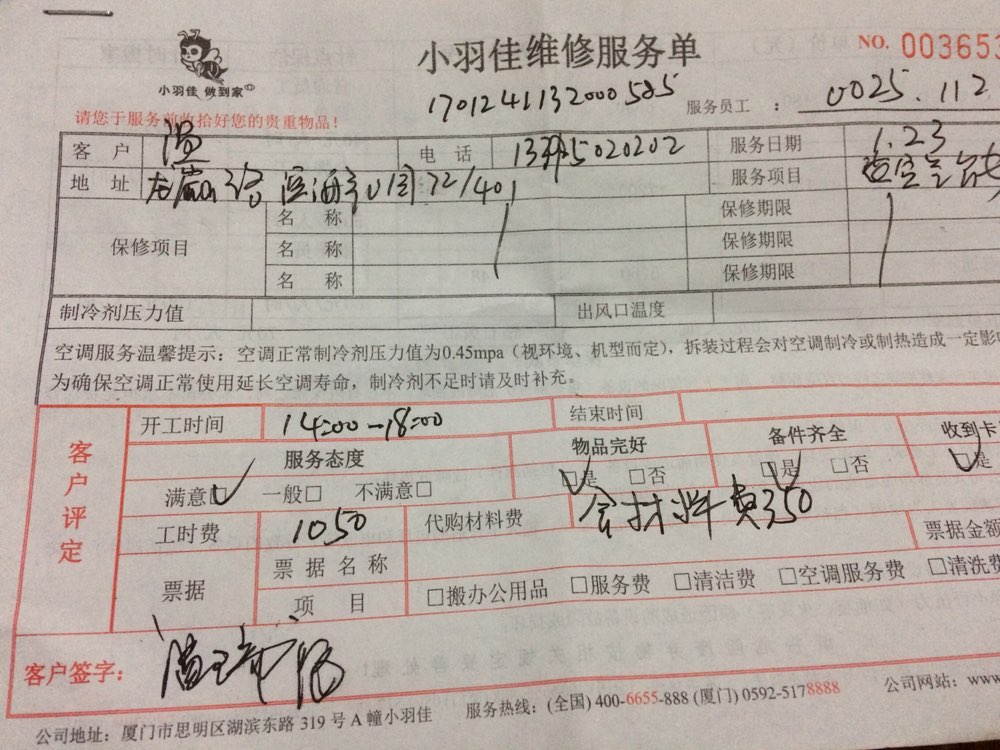 小羽佳 做到家
小羽佳维修服务单
NO. 003653
1701241132000585
服务员工 ： 0025.112
请您于服务前收拾好您的贵重物品！
客 户 温 电 话 服务日期 1.23
地 址 服务项目
保修项目 名 称 保修期限
名 称 保修期限
名 称 保修期限
制冷剂压力值 出风口温度
空调服务温馨提示：空调正常制冷剂压力值为0.45mpa（视环境、机型而定），拆装过程会对空调制冷或制热造成一定影
为确保空调正常使用延长空调寿命，制冷剂不足时请及时补充。
客户评定
开工时间 14:00-18:00 结束时间
服务态度 物品完好 备件齐全 收到卡
满意□ 一般□ 不满意□ □是 □否 □是 □否 □是
工时费 1050 代购材料费 含材料费350 票据金额
票据 票据名称
项 目 □搬办公用品 □服务费 □清洁费 □空调服务费 □清洗费
客户签字：
公司地址：厦门市思明区湖滨东路 319 号 A 幢小羽佳 服务热线：(全国) 400-6655-888 (厦门) 0592-5178888 公司网站：www